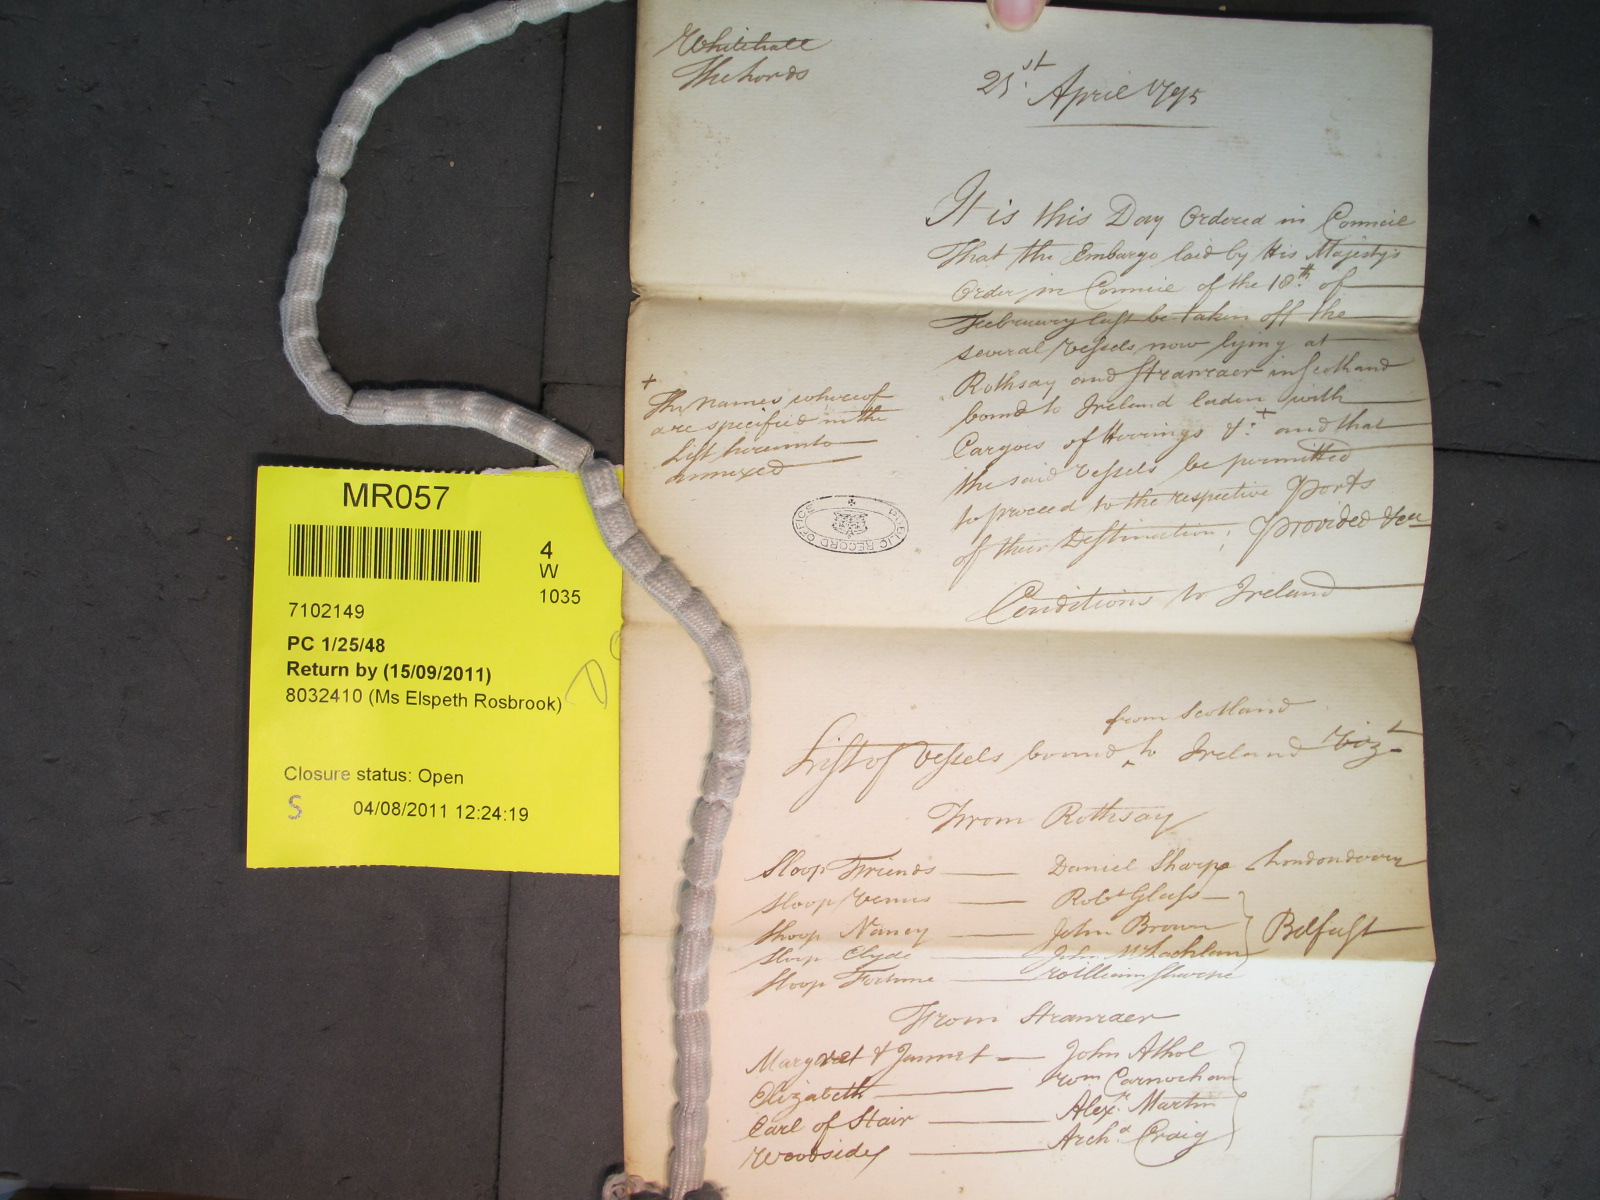 Whitehall
The Lords
21st. April 1795
It is this Day Ordered in Council
That the Embargo laid by His Majesty's
Order in Council of the 18th. of
February last be taken off the
several Vessels now lying at
Rothsay and Stranraer in Scotland
bound to Ireland laden with
Cargoes of Herrings &c. + and that
the said Vessels be permitted
to proceed to the respective Ports
of their Destination; Provided &ca
Conditions to Ireland
+
The Names whereof
are specified in the
List hereunto
annexed
PUBLIC RECORD OFFICE
from Scotland
List of Vessels bound ^ to Ireland Vizt
From Rothsay
Sloop Friends — Daniel Sharpe Londonderry
Sloop Venus — Robt Glass
Sloop Nancy — John Brown Belfast
Sloop Clyde — John McLachlan
Sloop Fortune — William Sharpe
From Stranraer
Margret & Jannet — John Athol
Elizabeth — Wm Carnochan
Earl of Stair — Alexr. Martin
Woodside — Archd Craig
MR057
4
W
1035
7102149
PC 1/25/48
Return by (15/09/2011)
8032410 (Ms Elspeth Rosbrook)
Closure status: Open
S 04/08/2011 12:24:19